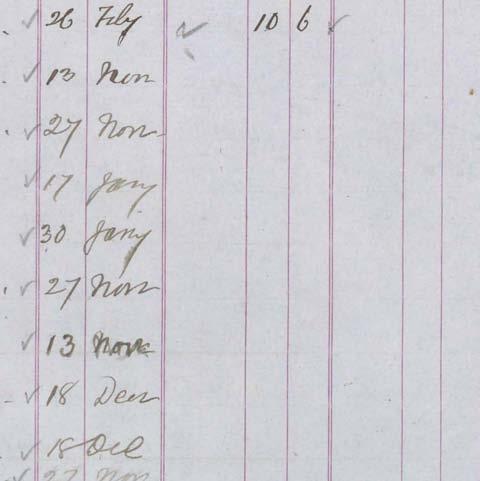 26 Feby 10 6
13 Nov
27 Nov
17 Jany
30 Jany
27 Nov
13 Nov
18 Decr
18 Dec
27 Nov